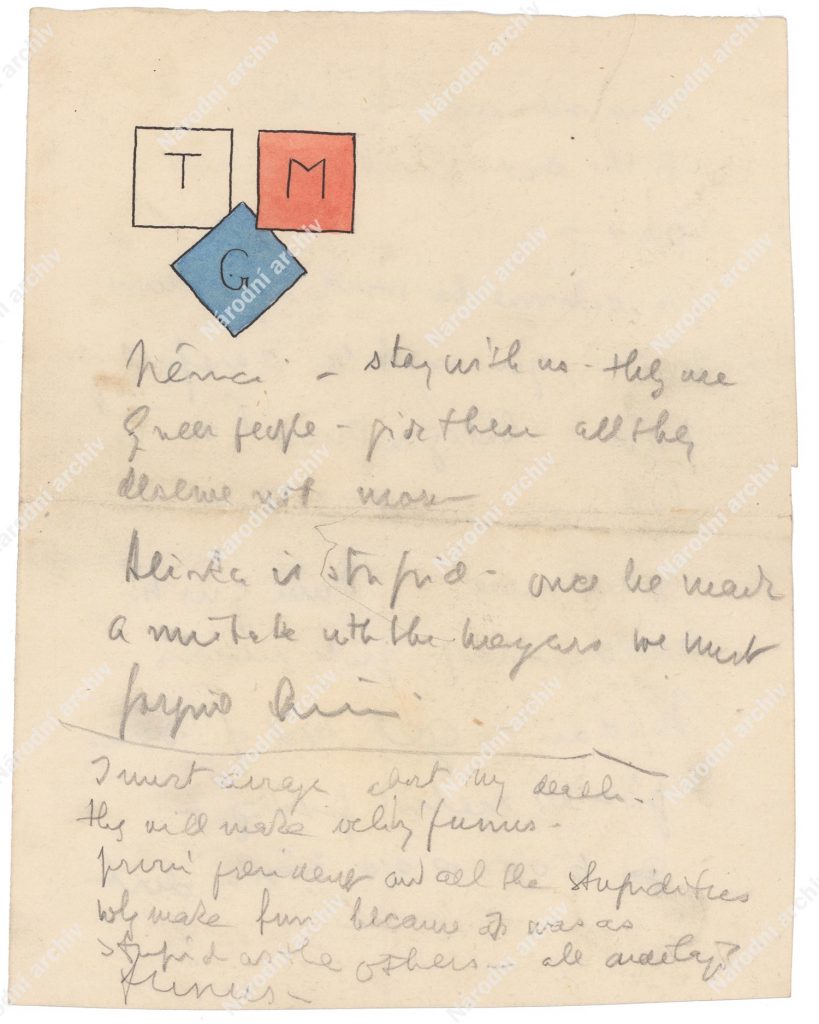 T M
G
Němci - stay with us - they are
queer people - give them all they
deserve not more
Hlinka is stupid - once he made
a mistake with the magyars we must
forgive him
I must arrange about my death -
they will make velký funus -
první president and all the stupidities
why make fun because it was as
stupid as the others - all
funus -
Národní archiv